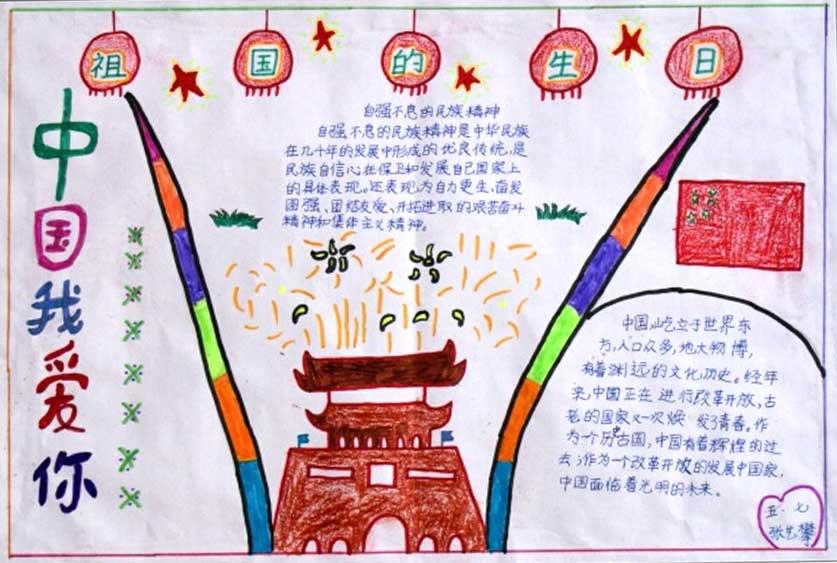 祖国的生日
中国我爱你
自强不息的民族精神
自强不息的民族精神是中华民族
在几千年的发展中形成的优良传统,是
民族自信心在保卫和发展自己国家上
的具体表现。还表现为自力更生、奋发
图强、团结友爱、开拓进取的艰苦奋斗
精神和集体主义精神。
中国屹立于世界东
方,人口众多,地大物博,
有着渊远的文化历史。经年
来,中国正在进行改革开放,古
老的国家又一次焕发了青春。作
为一个历古国,中国有着辉煌的过
去;作为一个改革开放的发展中国家,
中国面临着光明的未来。
五·七
张艺攀